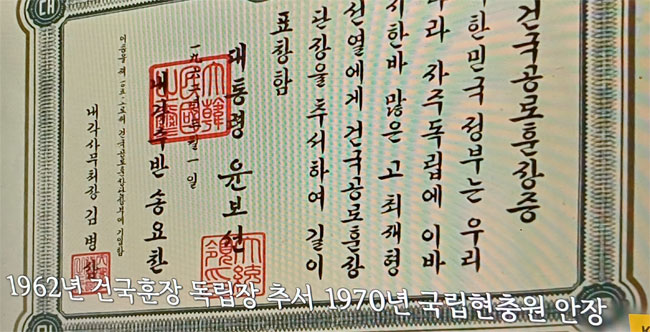 건국공로훈장증
대한민국 정부는 우리
나라 자주독립에 이바
지한바 많은 고 최재형
선열에게 건국공로훈장
단장을 추서하여 길이
표창함
一九六二年 三月 一 일
대통령 윤보선
내각수반 송요찬
내각사무처장 김병삼
1962년 건국훈장 독립장 추서 1970년 국립현충원 안장